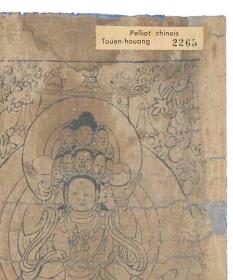 Pelliot chinois
Touen-houang 2265